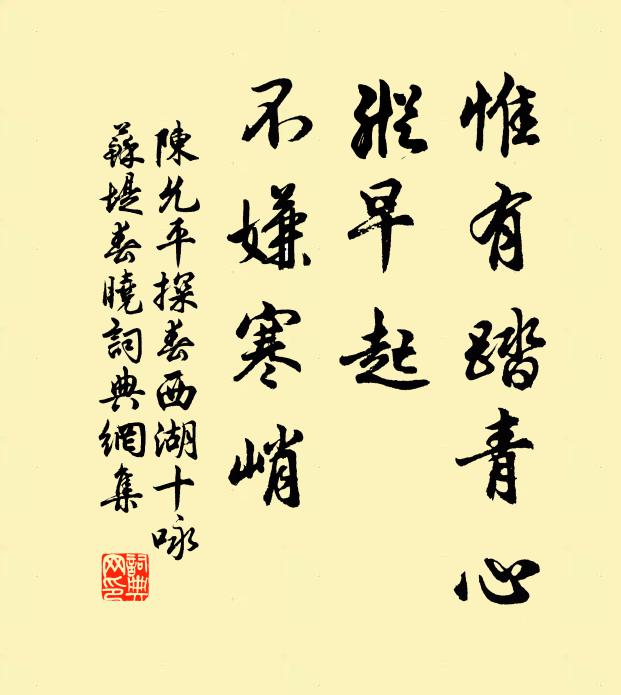 惟有踏青心
縱早起
不嫌寒峭
陳允平探春西湖十咏
蘇堤春曉詞典網集
詞典
网印